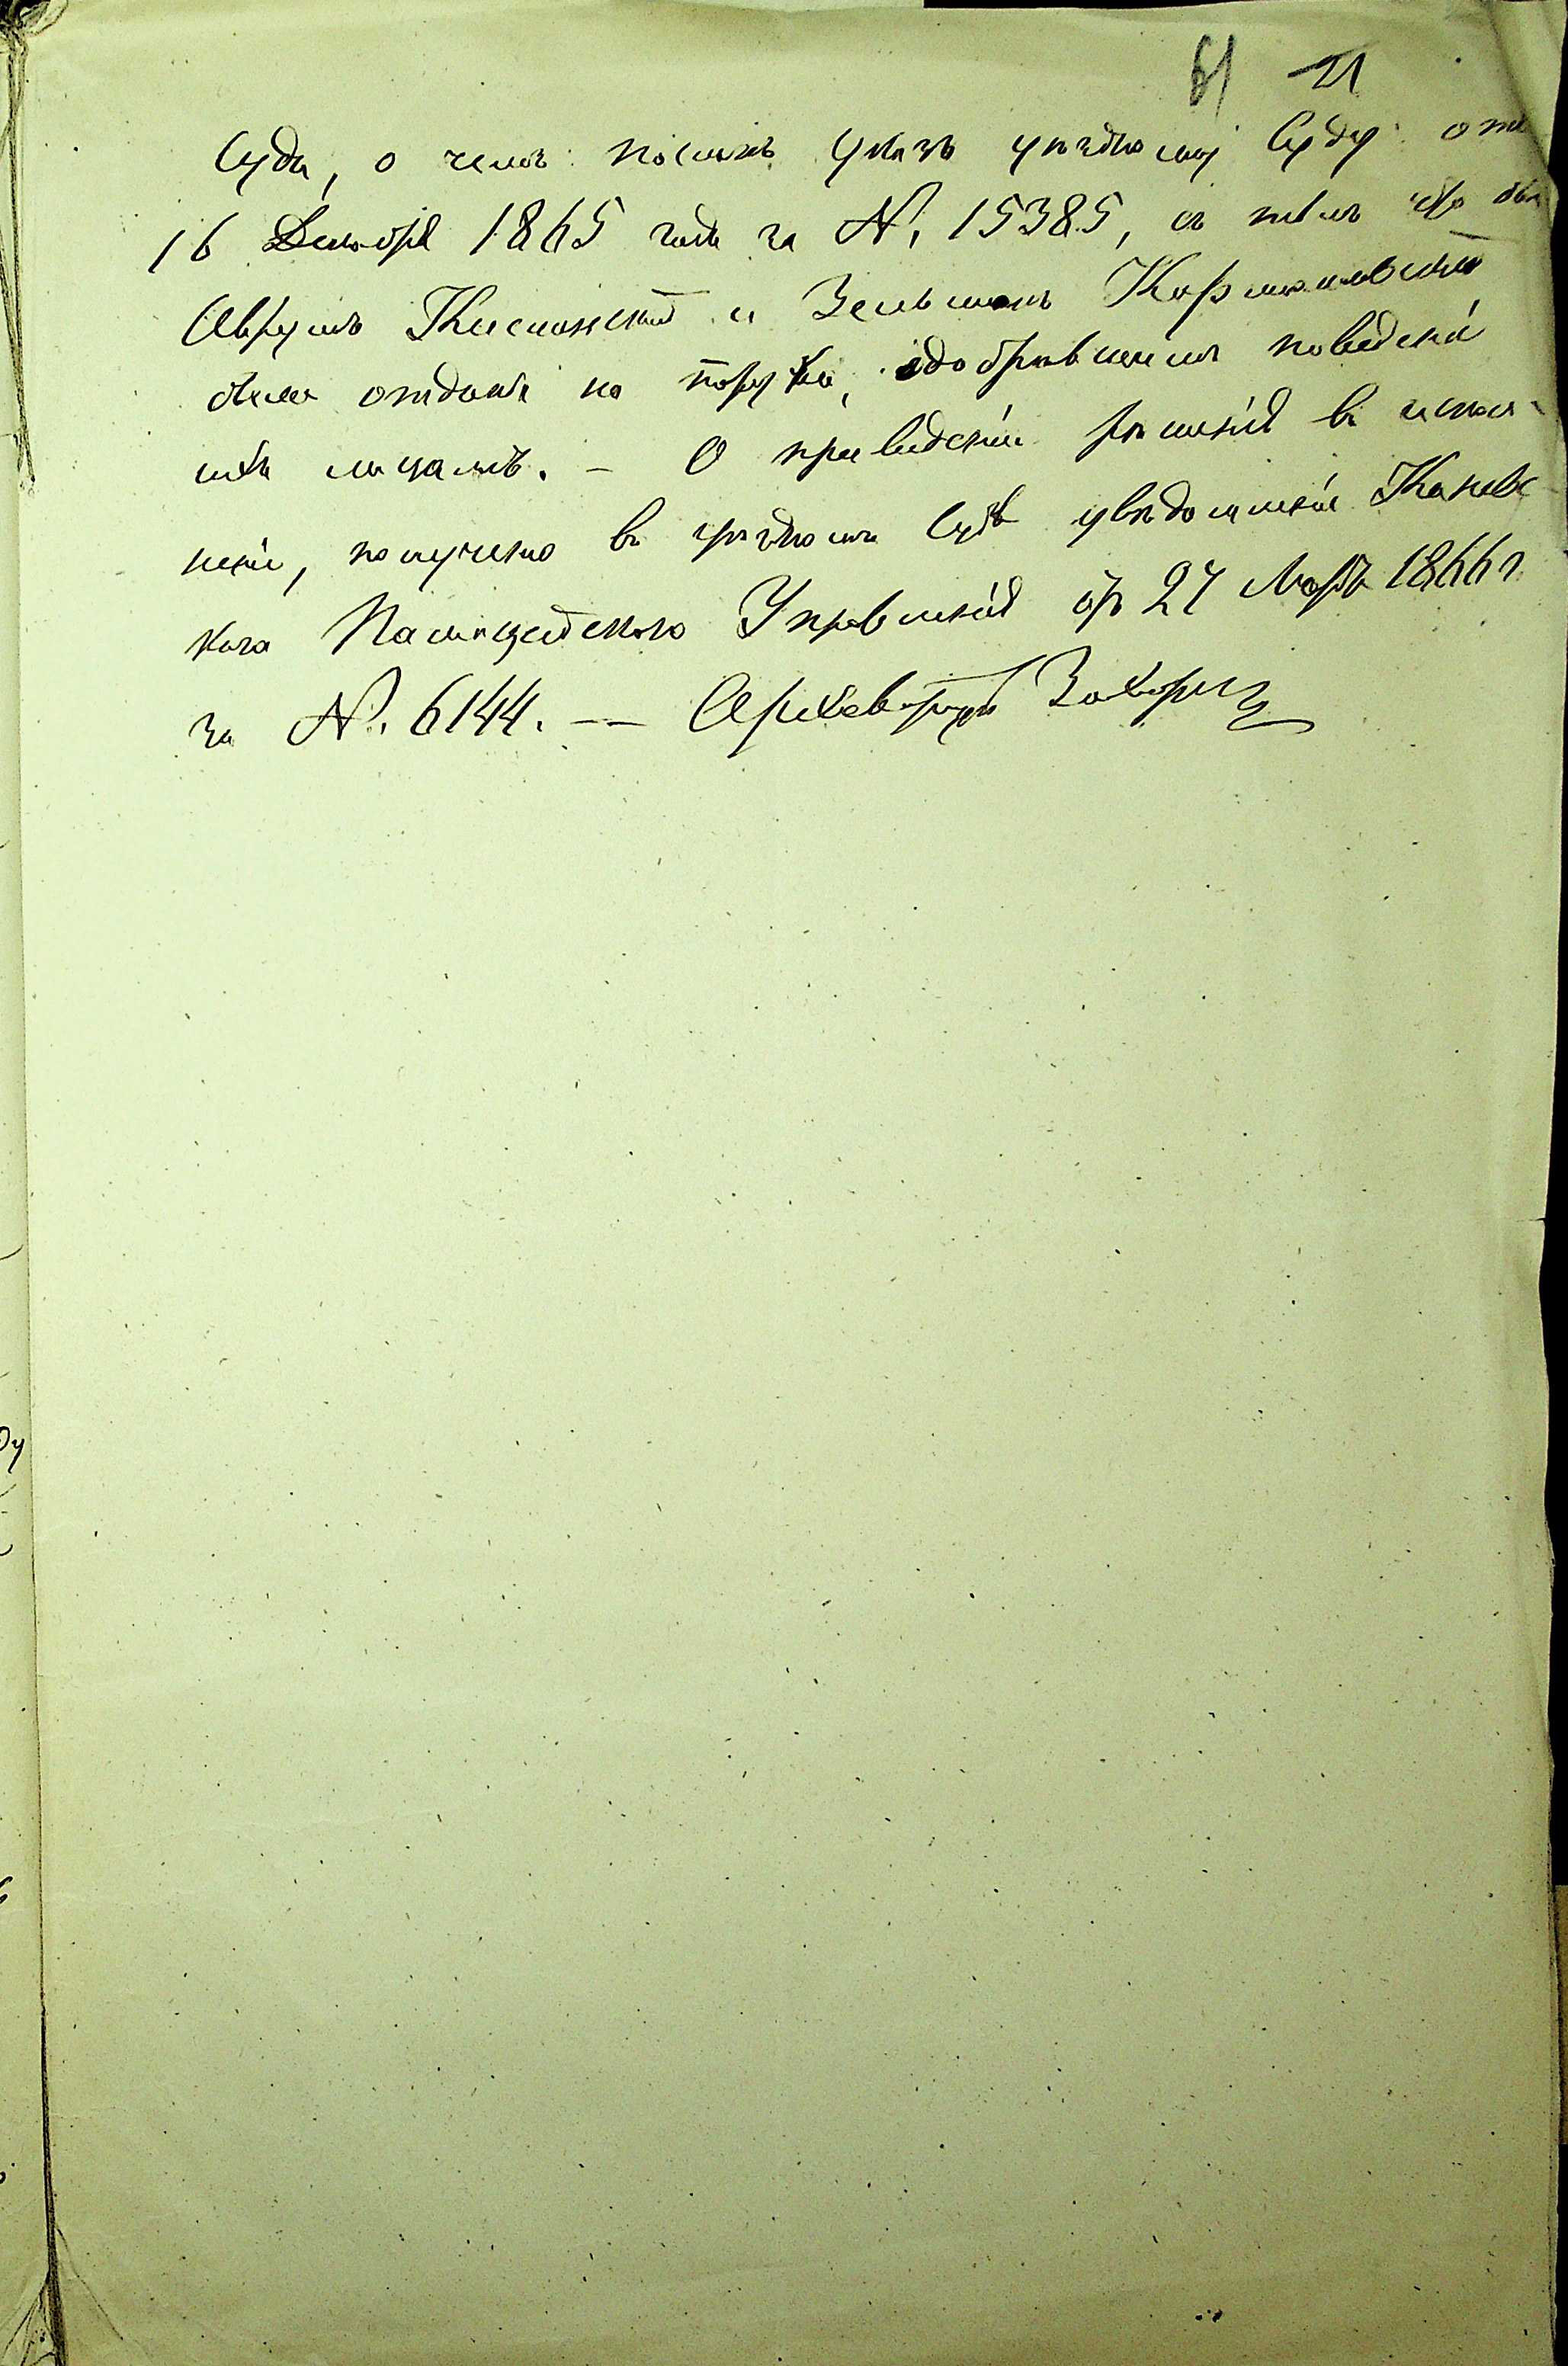 61 21
Суда, о чемъ посланъ указъ уѣздному Суду отъ
16 Декабря 1865 года за №. 15385, съ тѣмъ чтобы
Аврумъ и Зельманъ
были отданы на поруки, одобрившимъ поведенiе
ихъ лицамъ. – О приведенiи рѣшенiя въ испол-
ненiе, получено въ уѣздномъ Судѣ увѣдомленiе Каневс
кого Полицейского Управленiя отъ 27 Марта 1866 г
за №. 6144. — Архиварiусъ